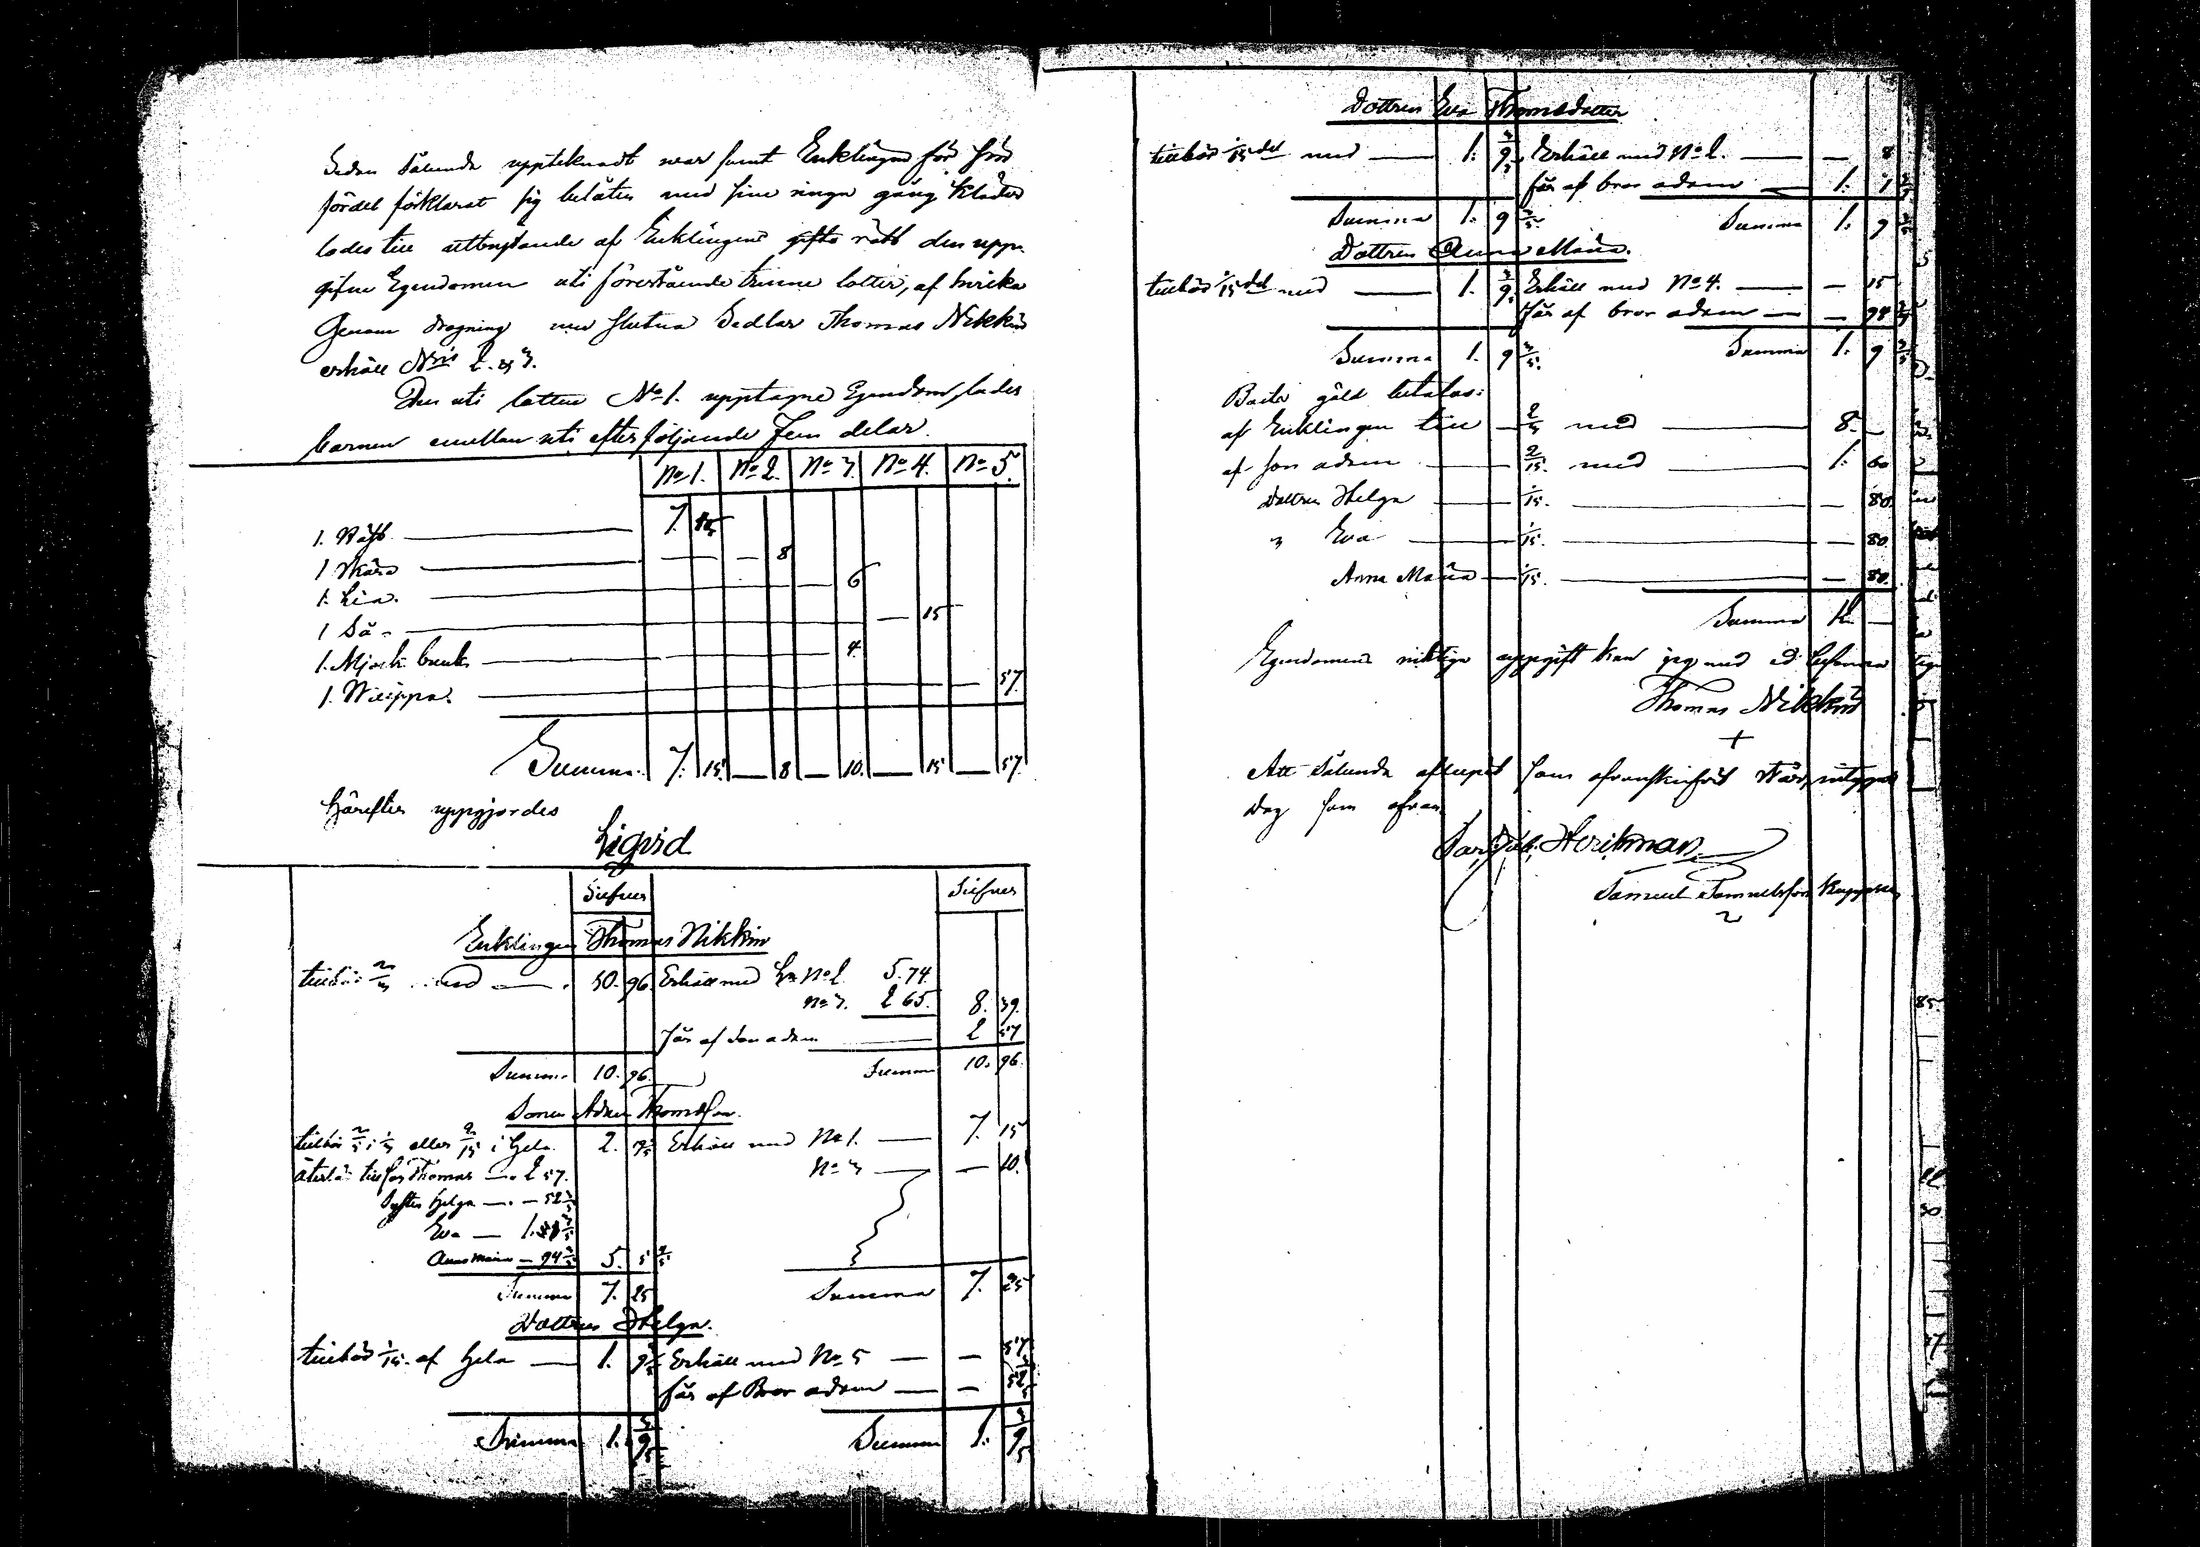 Sedan sålunda uppteknadt war samt Enklingen för sin
fördel förklarat sig belåten med sine ringa gång kläder
lades till utbrytande af Enklingens gifto rätt den upp-
gifne Egendomen uti förestående trenne lotter, af hvilka
Genom dragning med slutna Sedlar Thomas Nikkin
erhåll N:ris 2. & 3.
Den uti lotten No 1. upptagne Egendom, lades
barnen emellan uti efterföljande fem delar.
No 1. No 2. No 3. No 4. No 5.
1. 7. 15
1 Skära — — 8
1. Lia. — 6
1 Så — — 15
1. Mjölk bunk — 4.
1. — 57.
Summa. 7. 15. — 8 — 10. — 15 — 57.
Härefter uppgjordes
Liqvid
Silfver Silfver
Enklingen Thomas Nikkin
tillhör 2/3 med — 10. 96. Erhåll med No 2. 5.74.
No 3. 2 65. 8. 39.
Får af Son adam 2 57
Summa 10. 96. Summa 10. 96.
Sonen Adam Thomasson.
tillhör 2/5 i 1/3 eller 2/15 i hela. 2. 19 1/5 Erhåll med No 1. — 7. 15
återbär till far Thomas — 2 57. No 3 — — 10.
Syster Helga — — 52 3/5
Eva — 1. 1 3/5
Anna Maria — 94 3/5 5. 5 4/5
Summa 7. 25 Summa 7. 25
Dottren Helga.
tillhör 1/15. af hela — 1. 9 3/5 Erhåll med No 5 — — 57.
får af Bror adam — — 52 3/5
Summa 1. 9 3/5 Summa 1. 9 3/5
Dottren Eva Thomasdotter
tillhör 1/15 del med — 1. 9 3/5 Erhåll med No 2. — — 8
får af bror adam — 1. 1 3/5
Summa 1. 9 3/5 Summa 1. 9 3/5
Dottren Anna Maria.
tillhör 1/15 del med — 1. 9 3/5 Erhåll med No 4. — — 15
får af bror adam — — 94 3/5
Summa 1. 9 3/5. Summa 1. 9 3/5
Boets gäld betalas:
af Enklingen till — 2/3 med — 8. —
af son adam — 2/15. med — 1. 60
Dottren Helga — 1/15. — — 80.
" Eva — 1/15. — — 80.
Anna Maria — 1/15. — — 80.
Summa 12. —
Egendomens riktiga uppgift kan jag med ed besanna
Thomas Nikkin
+
Att Sålunda aflupit som ofvanskrifvit står, intygar
Dag som ofvan
Hoikman
Samuel Samuelsson